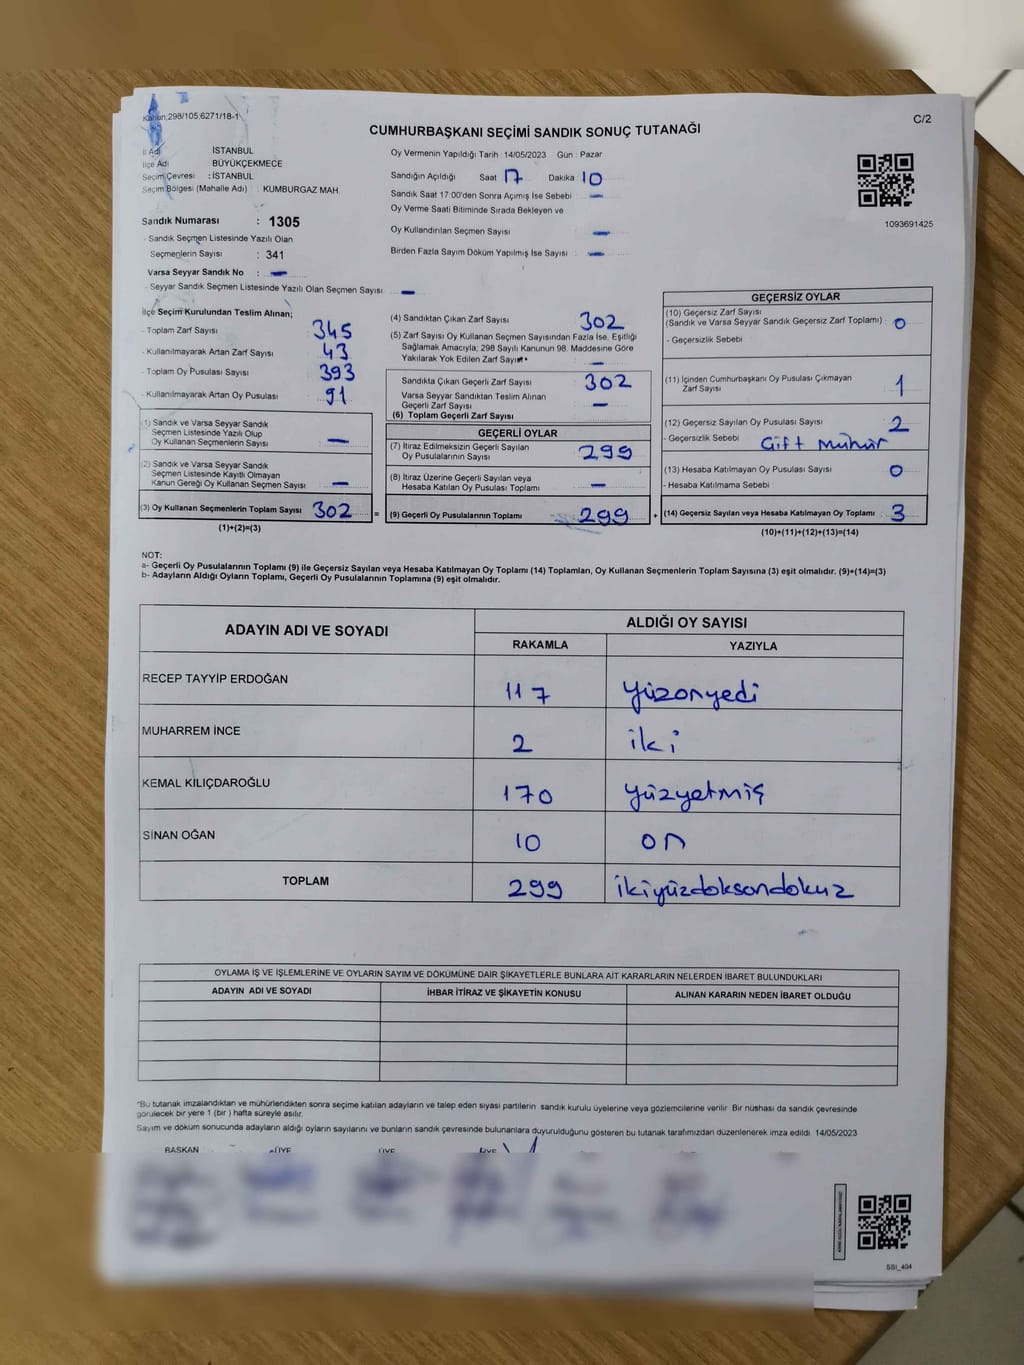 Kanun:298/105,6271/18-1
C/2
CUMHURBAŞKANI SEÇİMİ SANDIK SONUÇ TUTANAĞI
İl Adı İSTANBUL
İlçe Adı BÜYÜKÇEKMECE
Seçim Çevresi : İSTANBUL
Seçim Bölgesi (Mahalle Adı) : KUMBURGAZ MAH.
Sandık Numarası : 1305
- Sandık Seçmen Listesinde Yazılı Olan
Seçmenlerin Sayısı : 341
Varsa Seyyar Sandık No : -
- Seyyar Sandık Seçmen Listesinde Yazılı Olan Seçmen Sayısı -
Oy Vermenin Yapıldığı Tarih : 14/05/2023 Gün : Pazar
Sandığın Açıldığı Saat 17 Dakika 10
Sandık Saat 17:00'den Sonra Açımış İse Sebebi -
Oy Verme Saati Bitiminde Sırada Bekleyen ve
Oy Kullandırılan Seçmen Sayısı -
Birden Fazla Sayım Döküm Yapılmış İse Sayısı : -
1093691425
İlçe Seçim Kurulundan Teslim Alınan;
- Toplam Zarf Sayısı 345
- Kullanılmayarak Artan Zarf Sayısı 43
- Toplam Oy Pusulası Sayısı 393
- Kullanılmayarak Artan Oy Pusulası 91
(1) Sandık ve Varsa Seyyar Sandık
Seçmen Listesinde Yazılı Olup
Oy Kullanan Seçmenlerin Sayısı -
(2) Sandık ve Varsa Seyyar Sandık
Seçmen Listesinde Kayıtlı Olmayan
Kanun Gereği Oy Kullanan Seçmen Sayısı -
(3) Oy Kullanan Seçmenlerin Toplam Sayısı 302 =
(1)+(2)=(3)
(4) Sandıktan Çıkan Zarf Sayısı 302
(5) Zarf Sayısı Oy Kullanan Seçmen Sayısından Fazla İse, Eşitliği
Sağlamak Amacıyla, 298 Sayılı Kanunun 98. Maddesine Göre
Yakılarak Yok Edilen Zarf Sayısı -
Sandıkta Çıkan Geçerli Zarf Sayısı 302
Varsa Seyyar Sandıktan Teslim Alınan
Geçerli Zarf Sayısı -
(6) Toplam Geçerli Zarf Sayısı
GEÇERLİ OYLAR
(7) İtiraz Edilmeksizin Geçerli Sayılan
Oy Pusulalarının Sayısı 299
(8) İtiraz Üzerine Geçerli Sayılan veya
Hesaba Katılan Oy Pusulası Toplamı -
(9) Geçerli Oy Pusulalarının Toplamı 299 +
GEÇERSİZ OYLAR
(10) Geçersiz Zarf Sayısı
(Sandık ve Varsa Seyyar Sandık Geçersiz Zarf Toplamı) : 0
- Geçersizlik Sebebi
(11) İçinden Cumhurbaşkanı Oy Pusulası Çıkmayan
Zarf Sayısı 1
(12) Geçersiz Sayılan Oy Pusulası Sayısı 2
- Geçersizlik Sebebi Çift Mühür
(13) Hesaba Katılmayan Oy Pusulası Sayısı 0
- Hesaba Katılmama Sebebi
(14) Geçersiz Sayılan veya Hesaba Katılmayan Oy Toplamı : 3
(10)+(11)+(12)+(13)=(14)
NOT:
a- Geçerli Oy Pusulalarının Toplamı (9) ile Geçersiz Sayılan veya Hesaba Katılmayan Oy Toplamı (14) Toplamları, Oy Kullanan Seçmenlerin Toplam Sayısına (3) eşit olmalıdır. (9)+(14)=(3)
b- Adayların Aldığı Oyların Toplamı, Geçerli Oy Pusulalarının Toplamına (9) eşit olmalıdır.
ADAYIN ADI VE SOYADI ALDIĞI OY SAYISI
RAKAMLA YAZIYLA
RECEP TAYYİP ERDOĞAN 117 yüzonyedi
MUHARREM İNCE 2 iki
KEMAL KILIÇDAROĞLU 170 yüzyetmiş
SİNAN OĞAN 10 on
TOPLAM 299 ikiyüzdoksondokuz
OYLAMA İŞ VE İŞLEMLERİNE VE OYLARIN SAYIM VE DÖKÜMÜNE DAİR ŞİKAYETLERLE BUNLARA AİT KARARLARIN NELERDEN İBARET BULUNDUKLARI
ADAYIN ADI VE SOYADI İHBAR İTİRAZ VE ŞİKAYETİN KONUSU ALINAN KARARIN NEDEN İBARET OLDUĞU
*Bu tutanak imzalandıktan ve mühürlendikten sonra seçime katılan adayların ve talep eden siyasi partilerin sandık kurulu üyelerine veya gözlemcilerine verilir. Bir nüshası da sandık çevresinde
görülecek bir yere 1 (bir ) hafta süreyle asılır.
Sayım ve döküm sonucunda adayların aldığı oyların sayılarını ve bunların sandık çevresinde bulunanlara duyurulduğunu gösteren bu tutanak tarafımızdan düzenlenerek imza edildi 14/05/2023
BAŞKAN ÜYE ÜYE ÜYE
SSI_404